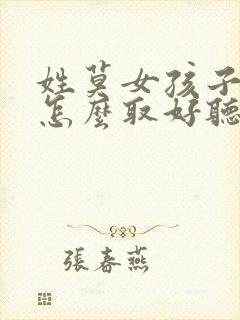 姓莫女孩子
怎麼取好聽
張春燕